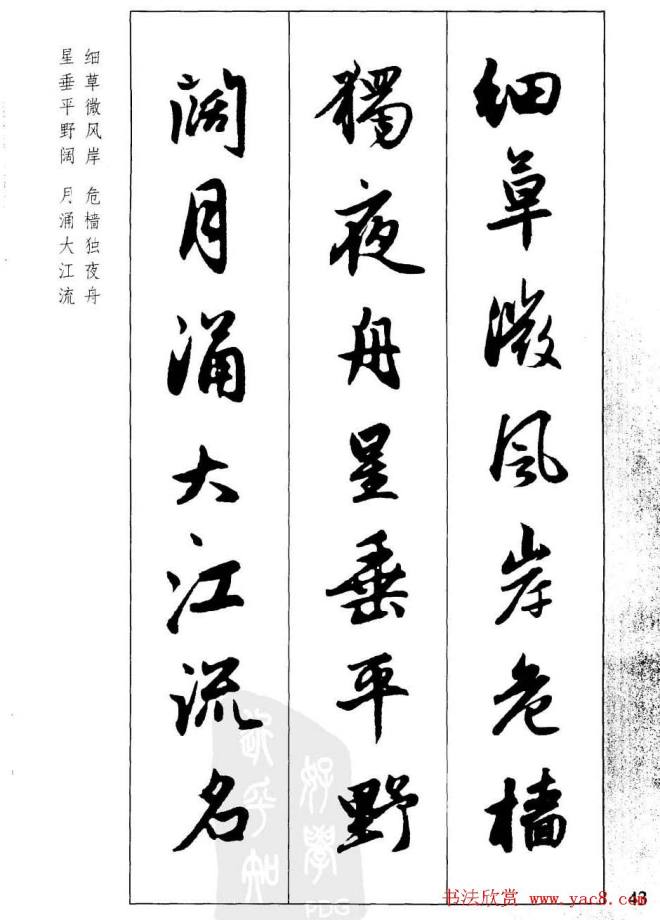 细草微风岸危樯
獨夜舟星垂平野
阔月涌大江流名
细草微风岸 危樯独夜舟
星垂平野阔 月涌大江流
好學
PDG
43
书法欣赏 www.yac8.com